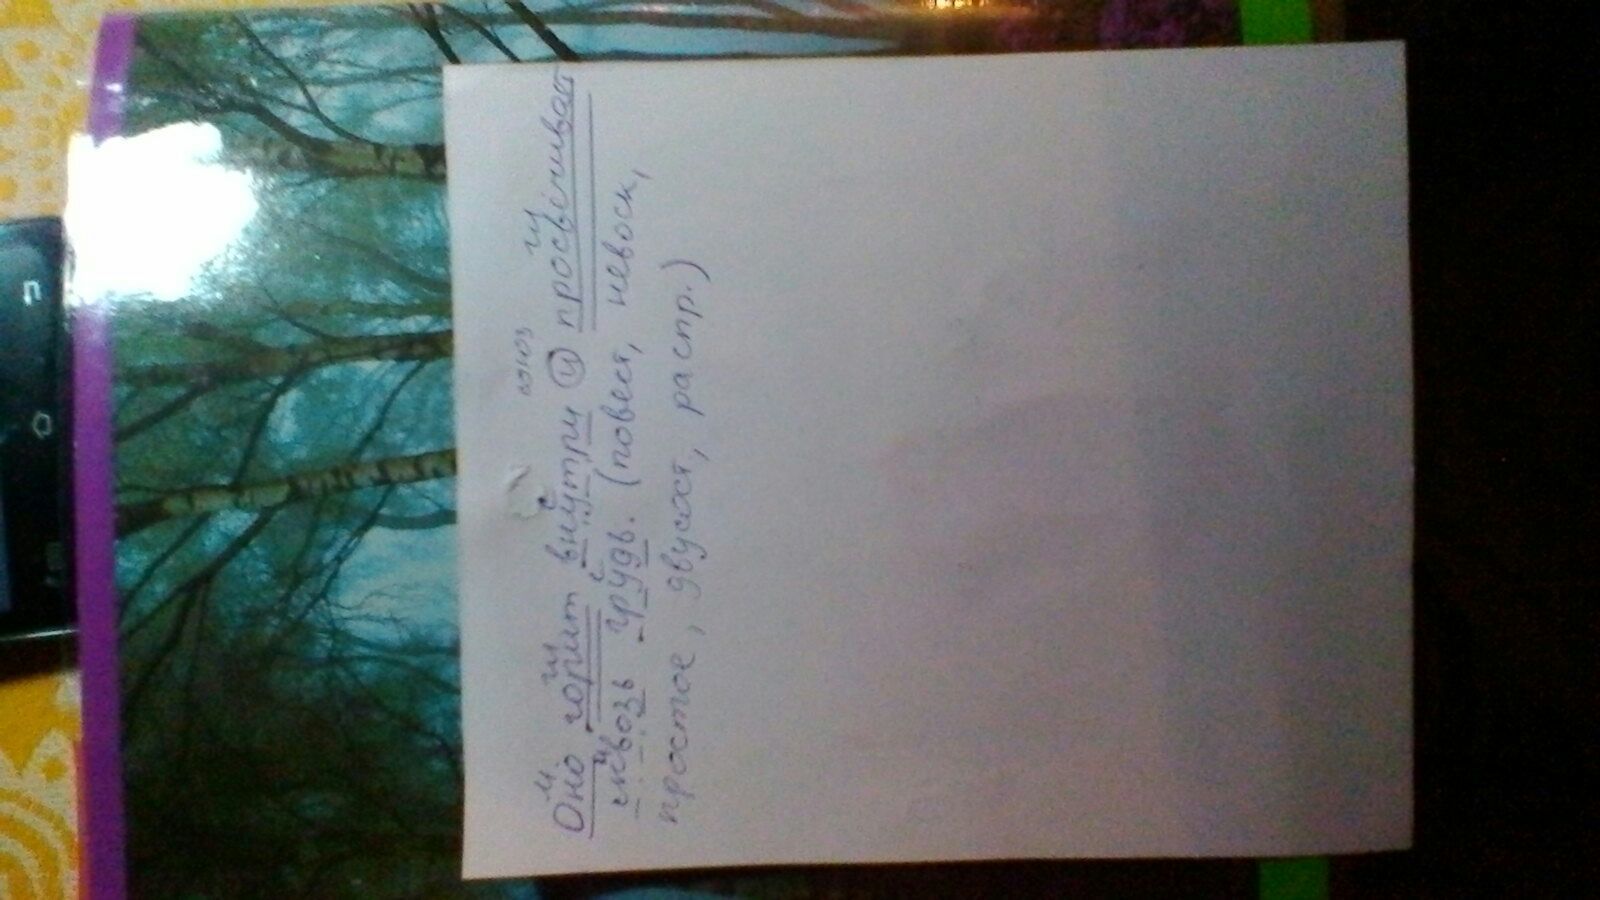 союз
м гл с гл
Оно горит внутри и просвечивает
с
сквозь грудь. (повест, невоск,
простое, двусост, распр.)